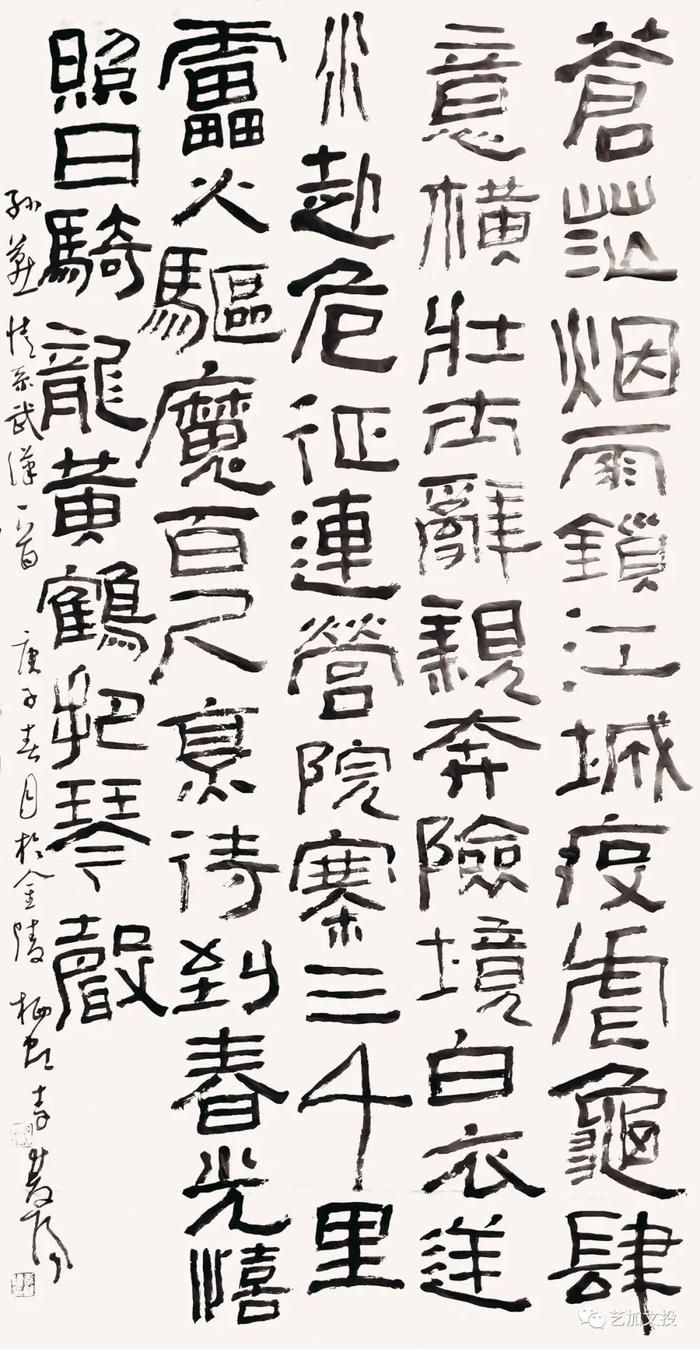 蒼茫烟雨鎖江城疫虐龜肆
意橫壯士辭親奔險境白衣逆
行赴危征連營院寨三千里
雷火驅魔百待到春光熺
照日騎龍黃鶴把琴聲
情系武漢一首 庚子春月於金陵
艺加文投